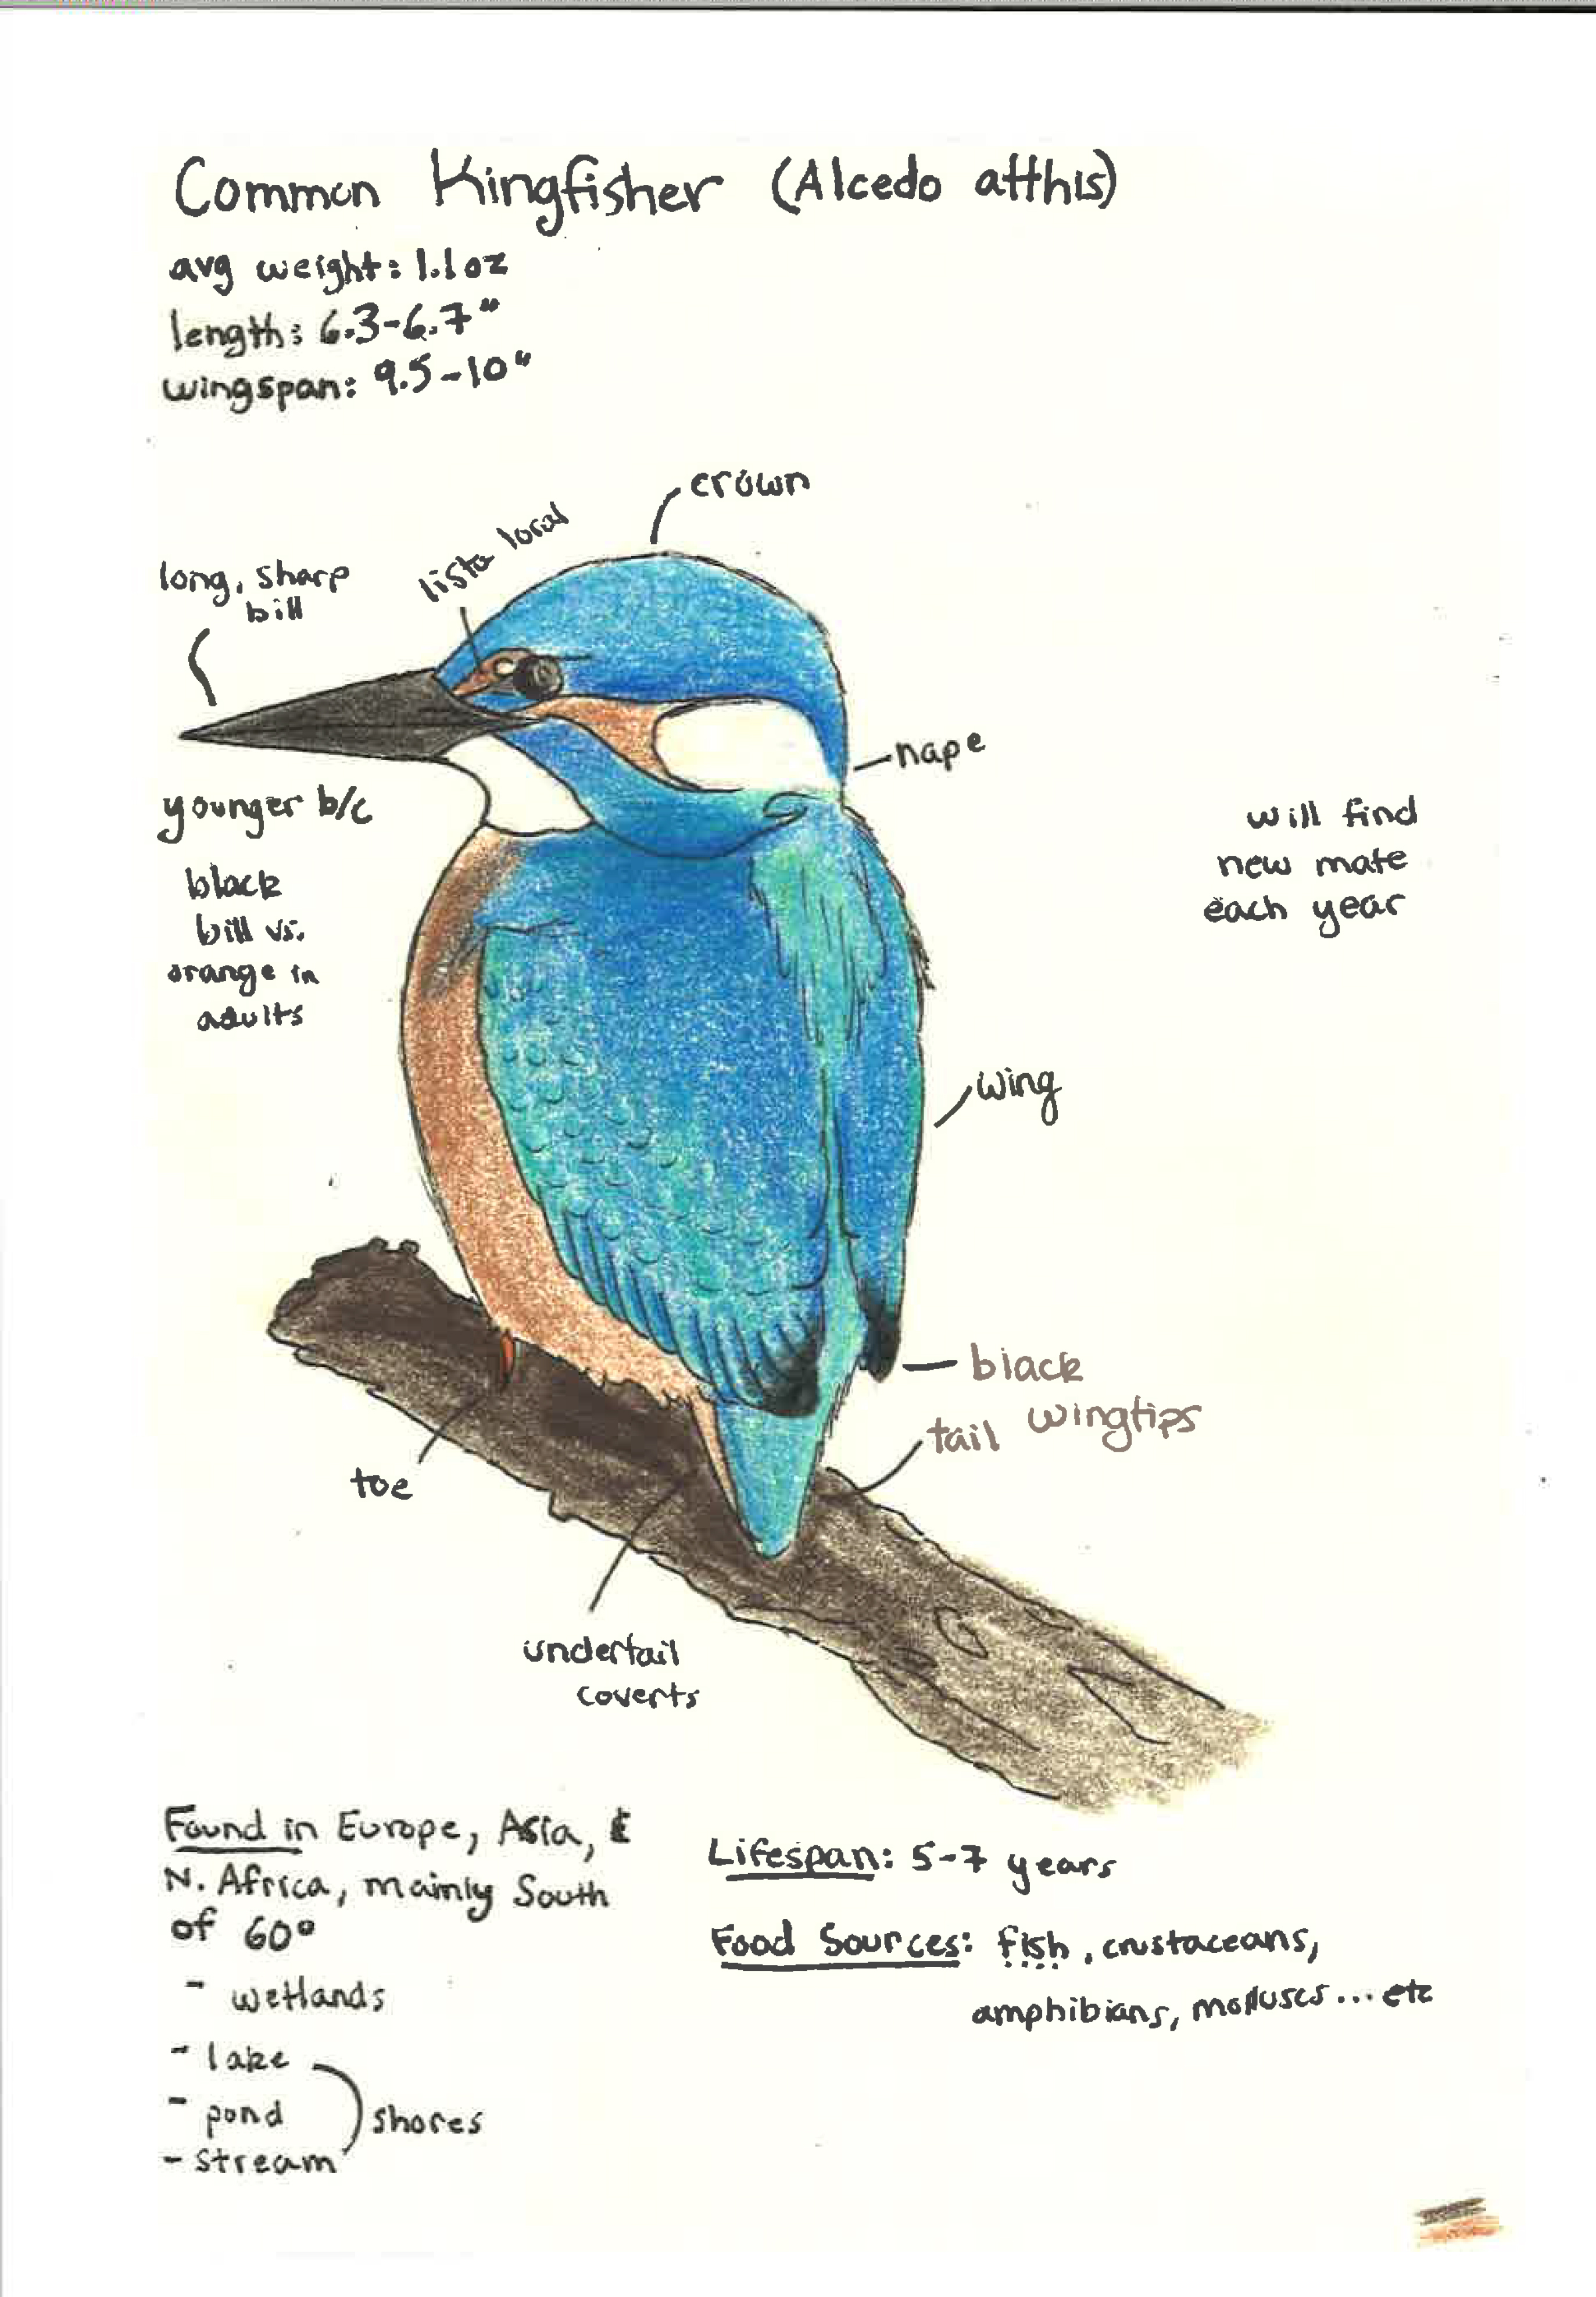 Common Kingfisher (Alcedo atthis)
avg weight: 1.1oz
length: 6.3-6.7"
wingspan: 9.5-10"
crown
lista loral
long, sharp
bill
nape
younger b/c
black
bill vs.
orange in
adults
will find
new mate
each year
wing
black
wingtips
tail
toe
undertail
coverts
Found in Europe, Asia, &
N. Africa, mainly South
of 60°
- wetlands
- lake
- pond
- stream
shores
Lifespan: 5-7 years
Food Sources: fish, crustaceans,
amphibians, molluscs...etc